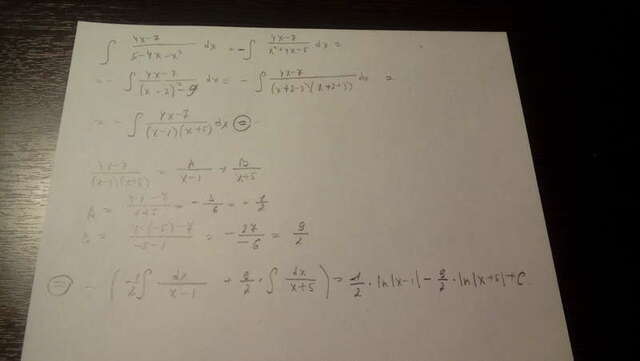 ∫ (4x-7)/(5-4x-x²) dx = -∫ (4x-7)/(x²+4x-5) dx =
= - ∫ (4x-7)/((x-2)²-9) dx = - ∫ (4x-7)/((x+2-3)(x+2+3)) dx =
= - ∫ (4x-7)/((x-1)(x+5)) dx =
(4x-7)/((x-1)(x+5)) = A/(x-1) + B/(x+5)
A = = -3/6 = -1/2
B = (4·(-5)-7)/(-5-1) = -27/-6 = 9/2
= - (-1/2 ∫ dx/(x-1) + 9/2 · ∫ dx/(x+5)) = 1/2 · ln|x-1| - 9/2 · ln|x+5| + C